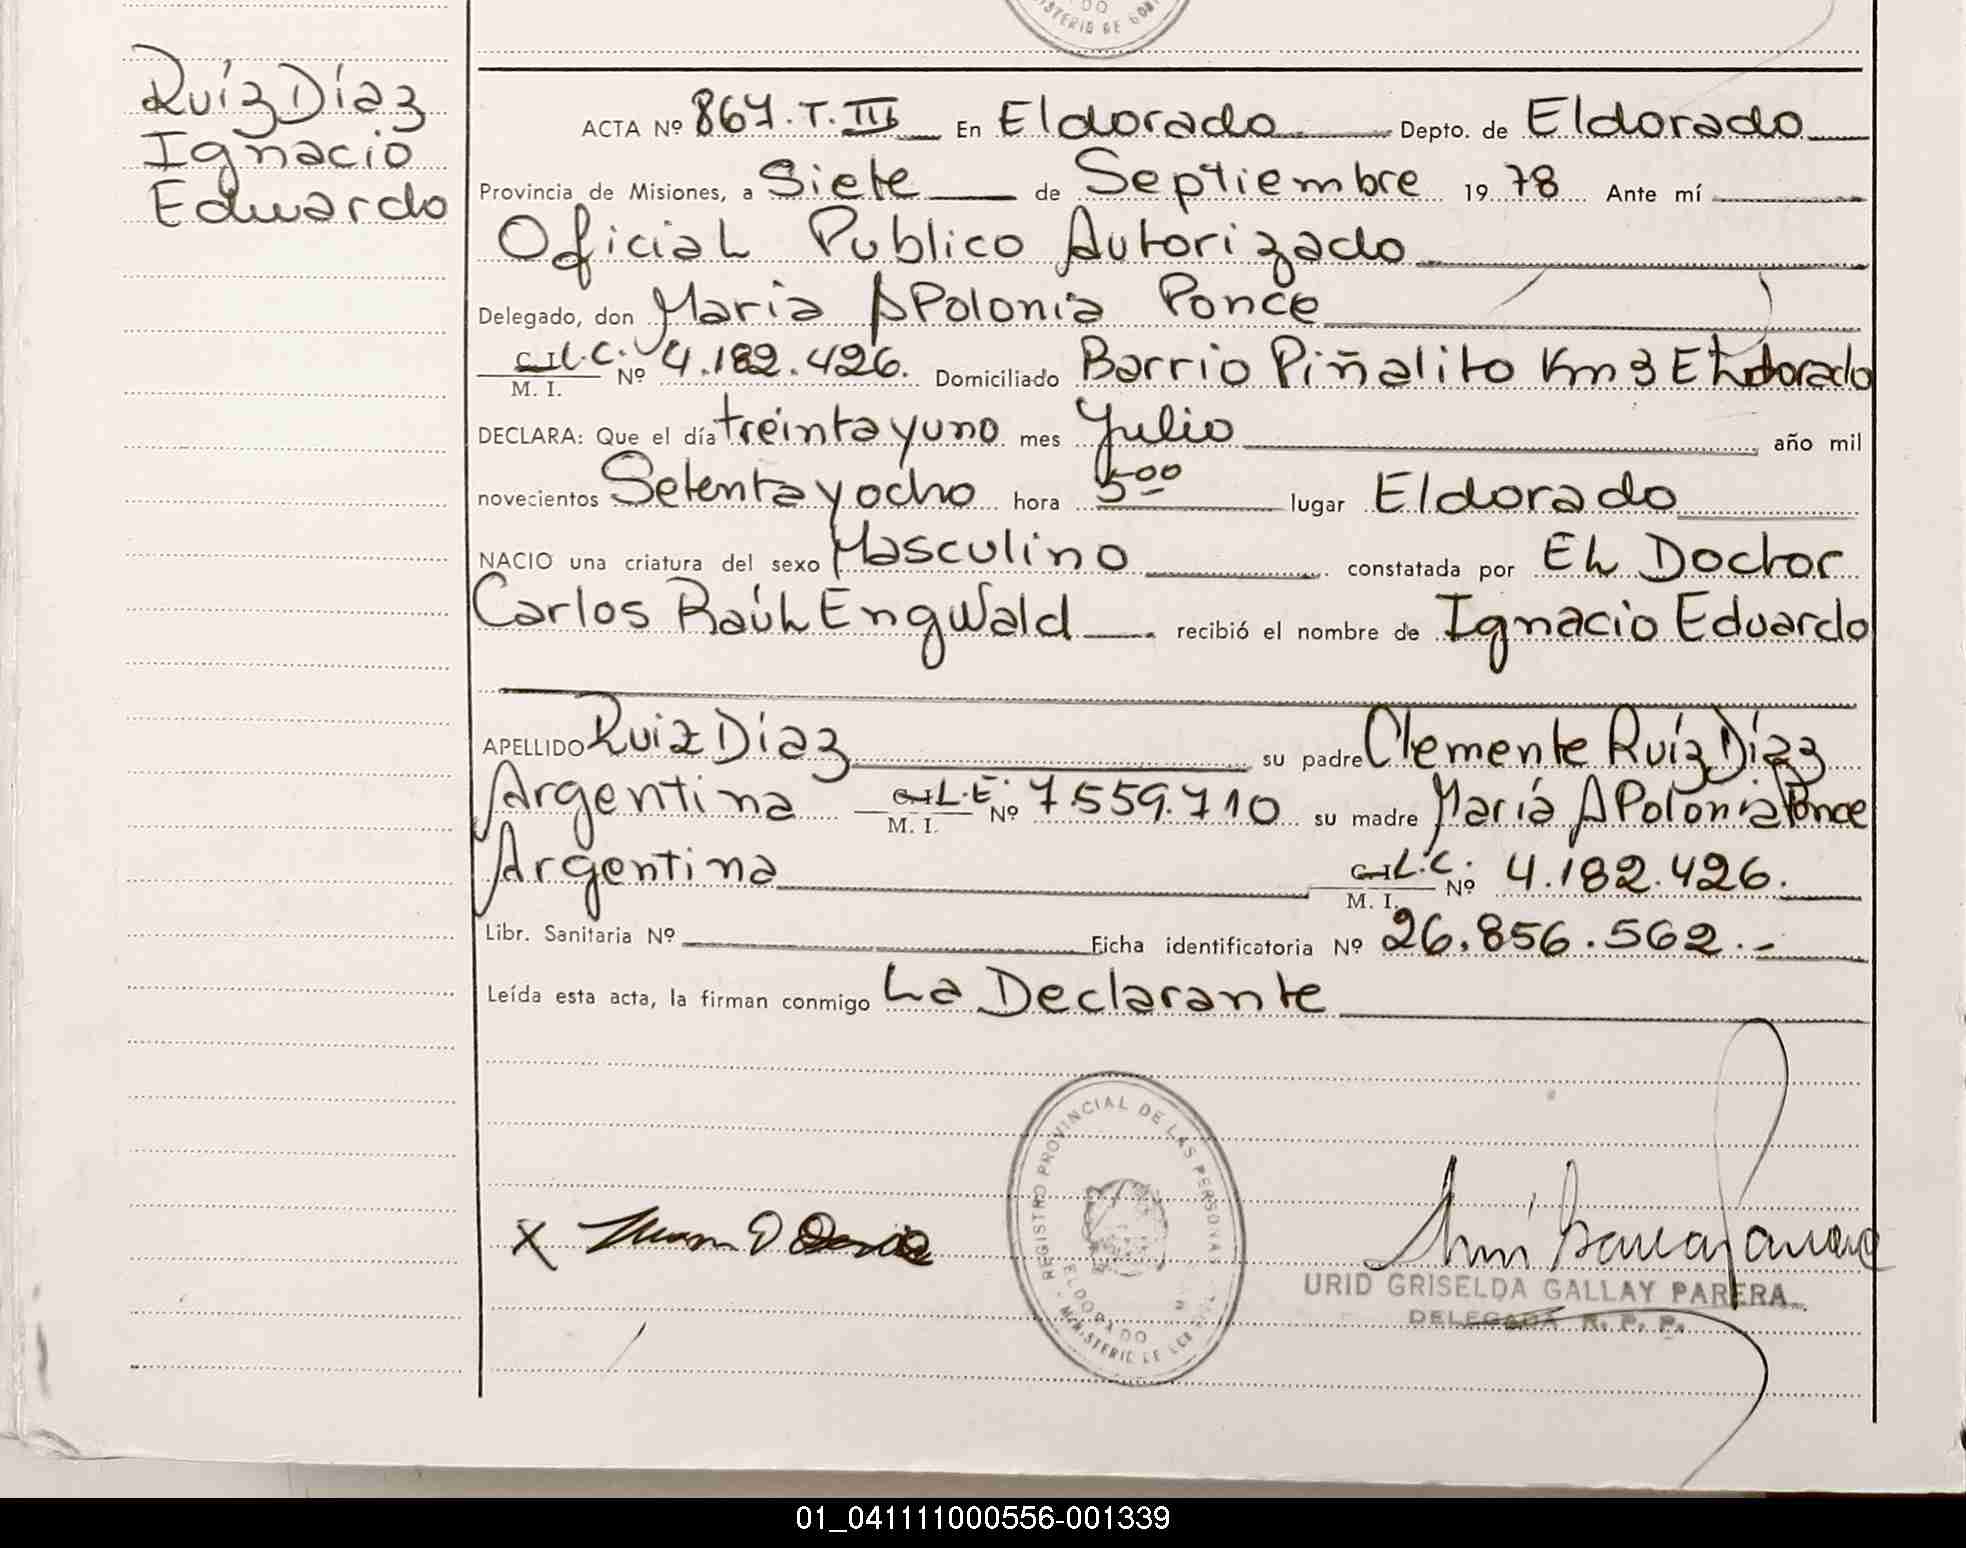 DO
MINISTERIO DE GOB
Ruíz Díaz
Ignacio
Eduardo
ACTA Nº 867. T. III En Eldorado Depto. de Eldorado
Provincia de Misiones, a Siete de Septiembre 19 78 Ante mí
Oficial Publico Autorizado
Delegado, don Maria APolonia Ponce
C. I. L.C. M. I. Nº 4.182.426. Domiciliado Barrio Piñalito Km 3 Eldorado
DECLARA: Que el día treinta y uno mes Julio año mil
novecientos Setenta y ocho hora 5 00 lugar Eldorado
NACIO una criatura del sexo Masculino constatada por EL Doctor
Carlos Raúl Engwald recibió el nombre de Ignacio Eduardo
APELLIDO Ruiz Díaz su padre Clemente Ruíz Díaz
Argentina C. I. L.E. M. I. Nº 7.559.710 su madre María APolonia Ponce
Argentina C. I. L.C. M. I. Nº 4.182.426.
Libr. Sanitaria Nº Ficha identificatoria Nº 26.856.562.-
Leída esta acta, la firman conmigo La Declarante
REGISTRO PROVINCIAL DE LAS PERSONAS
ELDORADO
MINISTERIO DE GOB
X
URID GRISELDA GALLAY PARERA
DELEGADA R. P. P.
01_041111000556-001339